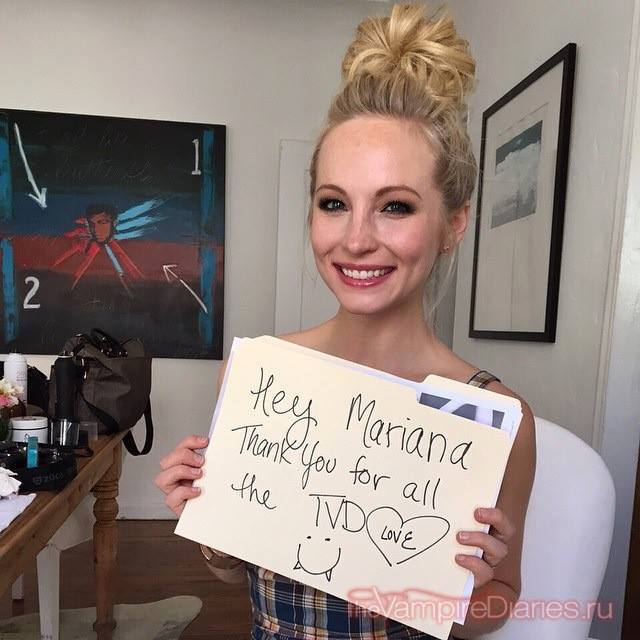 1
2
Hey Mariana
Thank You for all
the TVD LOVE
VampireDiaries.ru